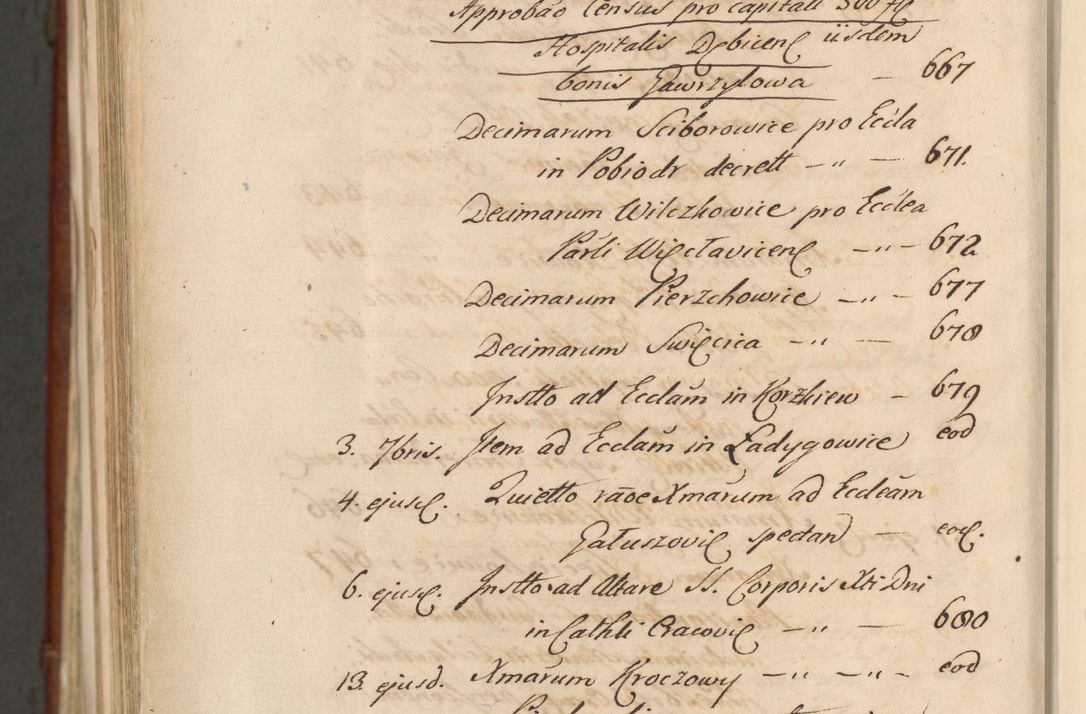 Approbão Census pro capitali 500 fl
Hospitalis Dębicen iisdem
bonis Gawrzyłowa — 667
Decimarum Sciborowice pro Eccła
in Pobiedr decrett — " — 671.
Decimarum Wilczkowice pro Ecclea
Parli Więcłavicen — " — 672
Decimarum Pierzchowice — " — 677
Decimarum Swięcica — " — 678
Instto ad Ecclam in Korzkiew — 679
3. 7bris. Item ad Ecclam in Ładygowice eod
4. ejusd. Quietto raõe Xmarum ad Eccleam
Gałuszovi spectan — eod.
6. ejusd. Instto ad Altare SS. Corporis Xti Dni
in Cathli Cracovi — " — 680
13. ejusd. Xmarum Kroczowy — " — " — eod